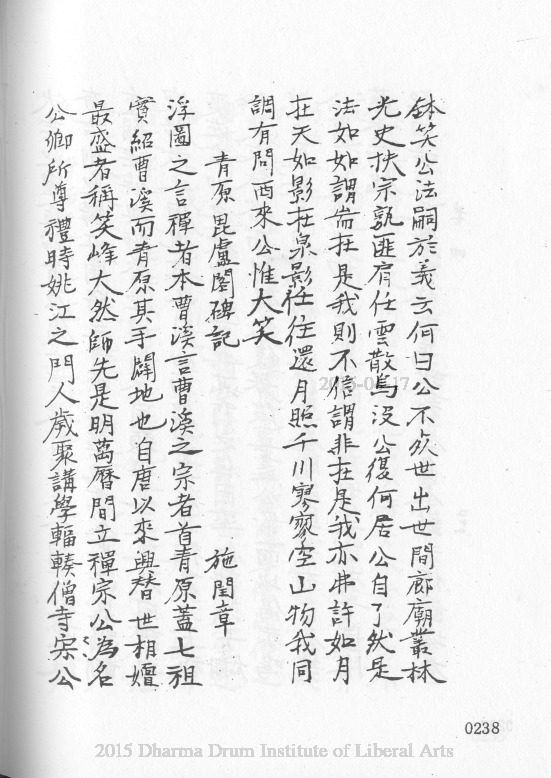 鉢笑公法嗣於義云何曰公不欬世出世間廊廟叢林
光史扶宗孰匪肩任雲散鳥沒公復何居公自了然是
法如如謂崙在是我則不信謂非在是我亦弗許如月
在天如影在泉影任往還月照千川寥寥空山物我同
調有問西來公惟大笑
青原毘盧閣碑記　施閏章
浮圖之言禪者本曹溪言曹溪之宗者首青原蓋七祖
實紹曹溪而青原其手闢地也自唐以來興替世相嬗
最盛者稱笑峰大然師先是明萬曆間立禪宗公為名
公卿所尊禮時姚江之門人歲聚講學輻輳僧寺宗公
0238
2015 Dharma Drum Institute of Liberal Arts